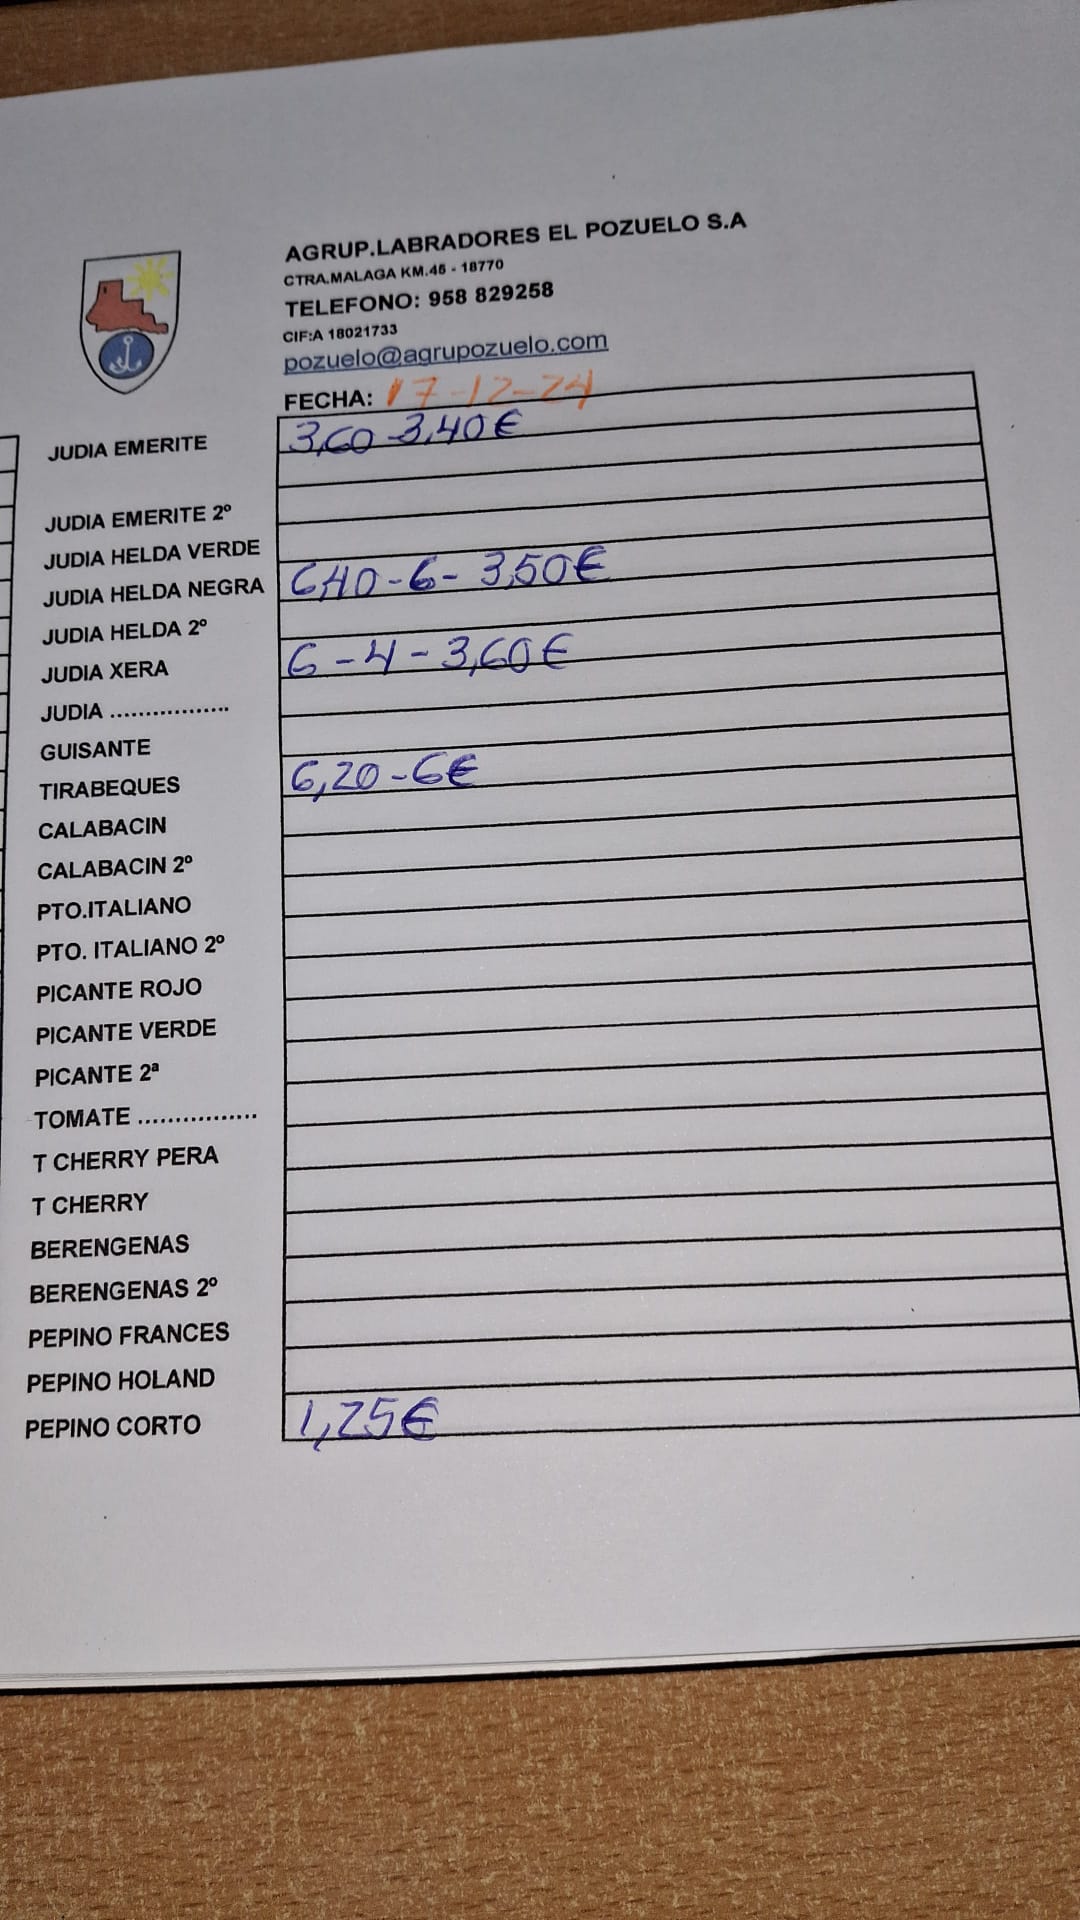 AGRUP.LABRADORES EL POZUELO S.A
CTRA.MALAGA KM.45 - 18770
TELEFONO: 958 829258
CIF:A 18021733
pozuelo@agrupozuelo.com
FECHA: 17-12-24
JUDIA EMERITE 3,60-3,40€
JUDIA EMERITE 2º
JUDIA HELDA VERDE
JUDIA HELDA NEGRA 6,40-6-3,50€
JUDIA HELDA 2º
JUDIA XERA 6-4-3,60€
JUDIA .................
GUISANTE
TIRABEQUES 6,20-6€
CALABACIN
CALABACIN 2º
PTO.ITALIANO
PTO. ITALIANO 2º
PICANTE ROJO
PICANTE VERDE
PICANTE 2ª
TOMATE ................
T CHERRY PERA
T CHERRY
BERENGENAS
BERENGENAS 2º
PEPINO FRANCES
PEPINO HOLAND
PEPINO CORTO 1,25€